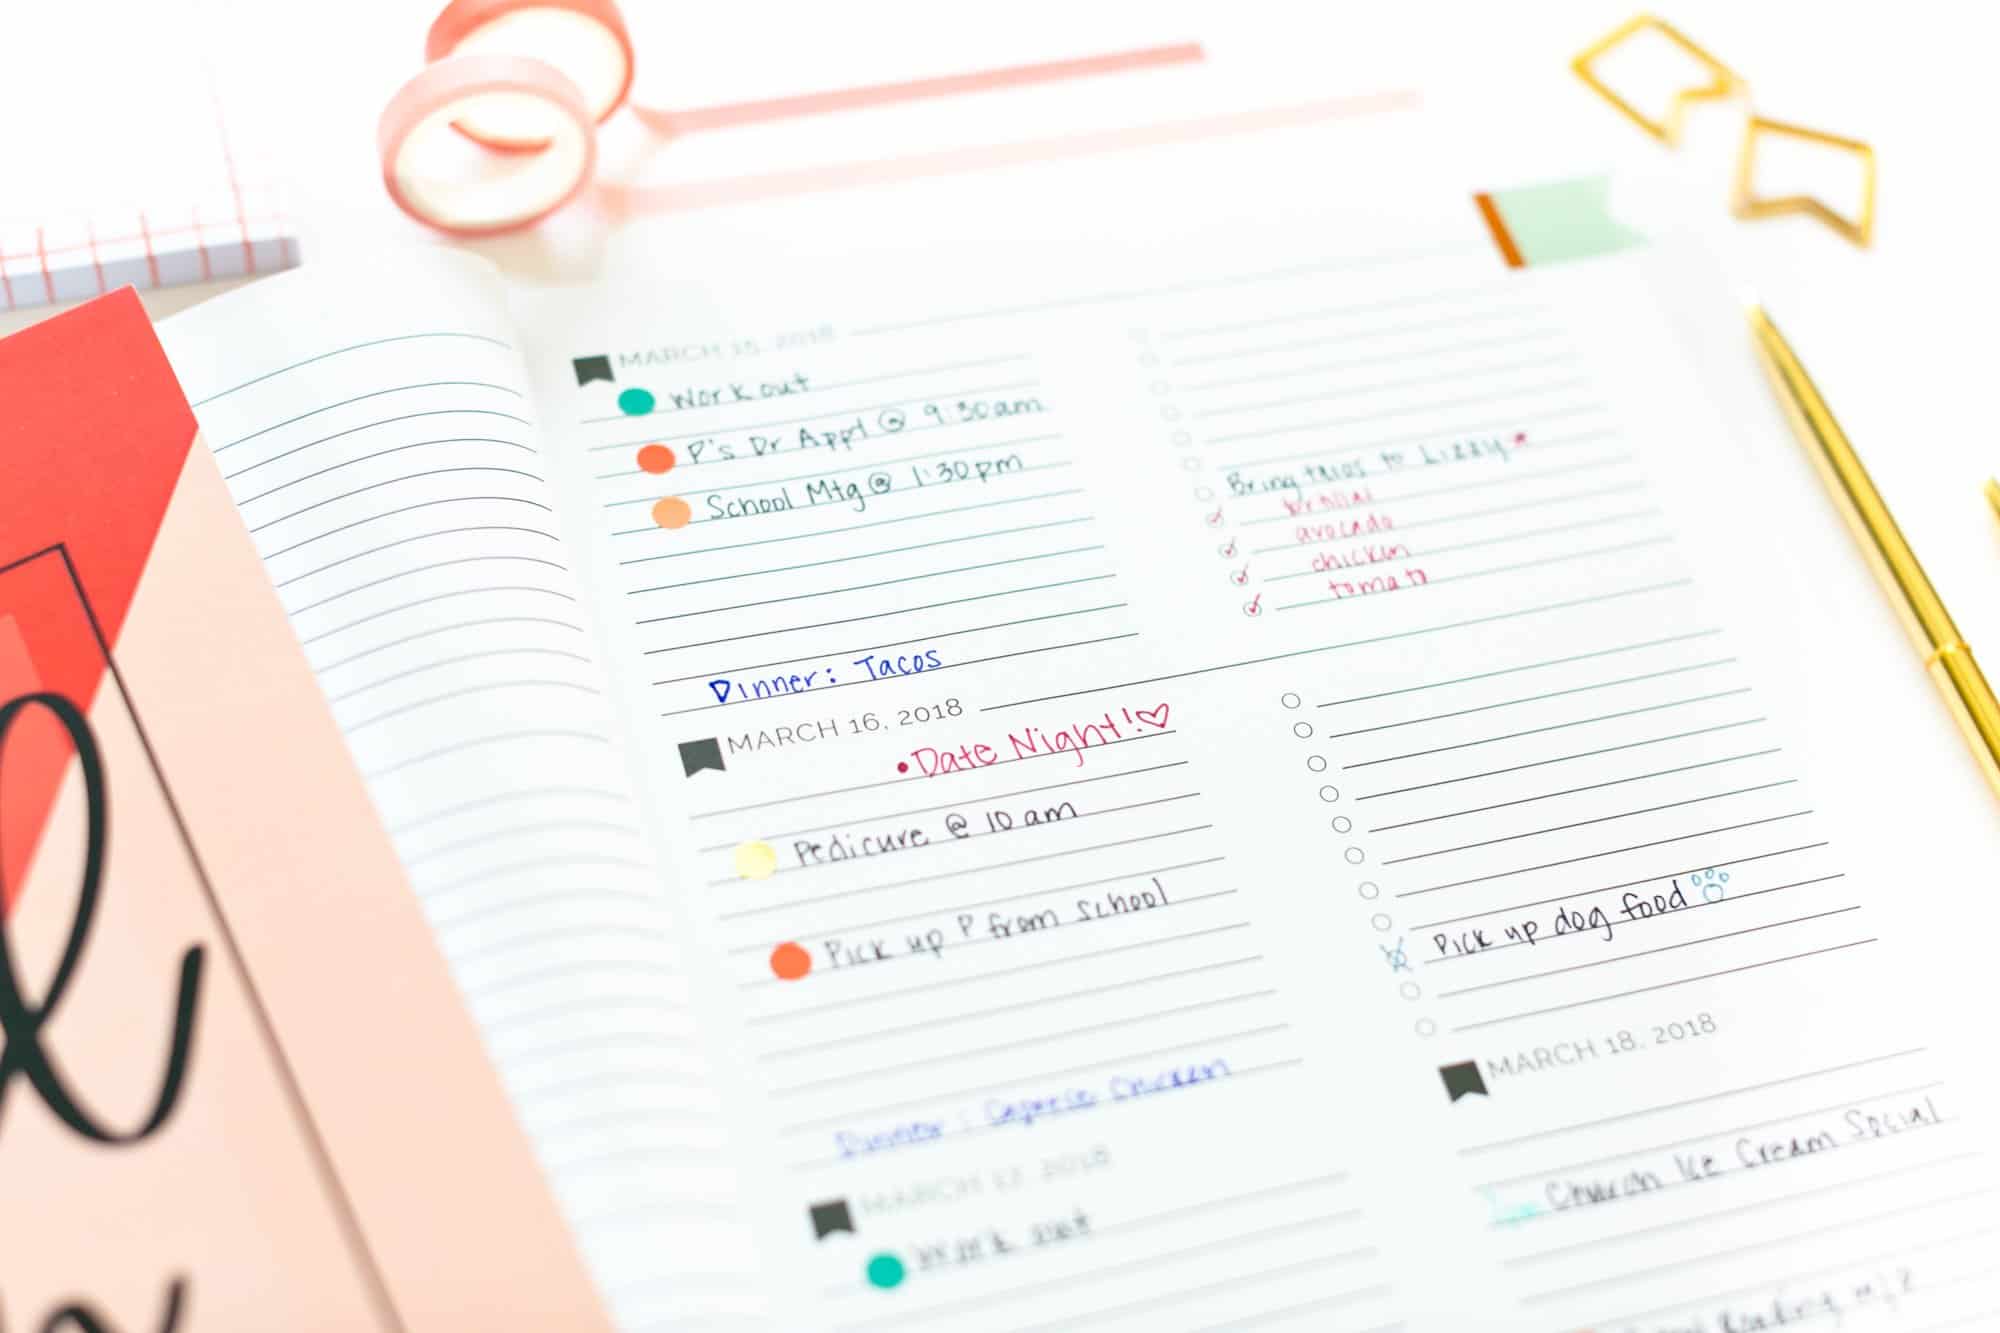 MARCH 15, 2018
Work out
P's Dr Appt @ 9:30am
School Mtg @ 1:30pm
Dinner: Tacos
Bring tacos to Lizzy
avocado
chicken
tomato
MARCH 16, 2018
• Date Night! ♡
Pedicure @ 10 am
Pick up P from school
Dinner: Caprese Chicken
Pick up dog food
MARCH 17, 2018
Work out
MARCH 18, 2018
Church Ice Cream Social
Reading